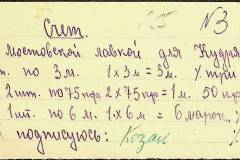 25 № 3
Счет.
Мостовской лавкой для Кудря
т. по 3 м. 1 x 3 м = 3 м. % три
2 шт. по 75 пф 2 x 75 пф = 1 м. 50 пф
1 шт. по 6 м. 1 x 6 м = 6 марок. %
подписуюсь: Козак